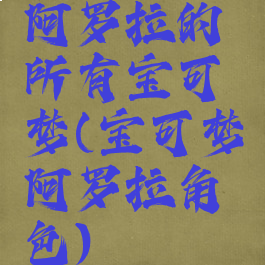 阿罗拉的
所有宝可
梦(宝可梦
阿罗拉角
色)